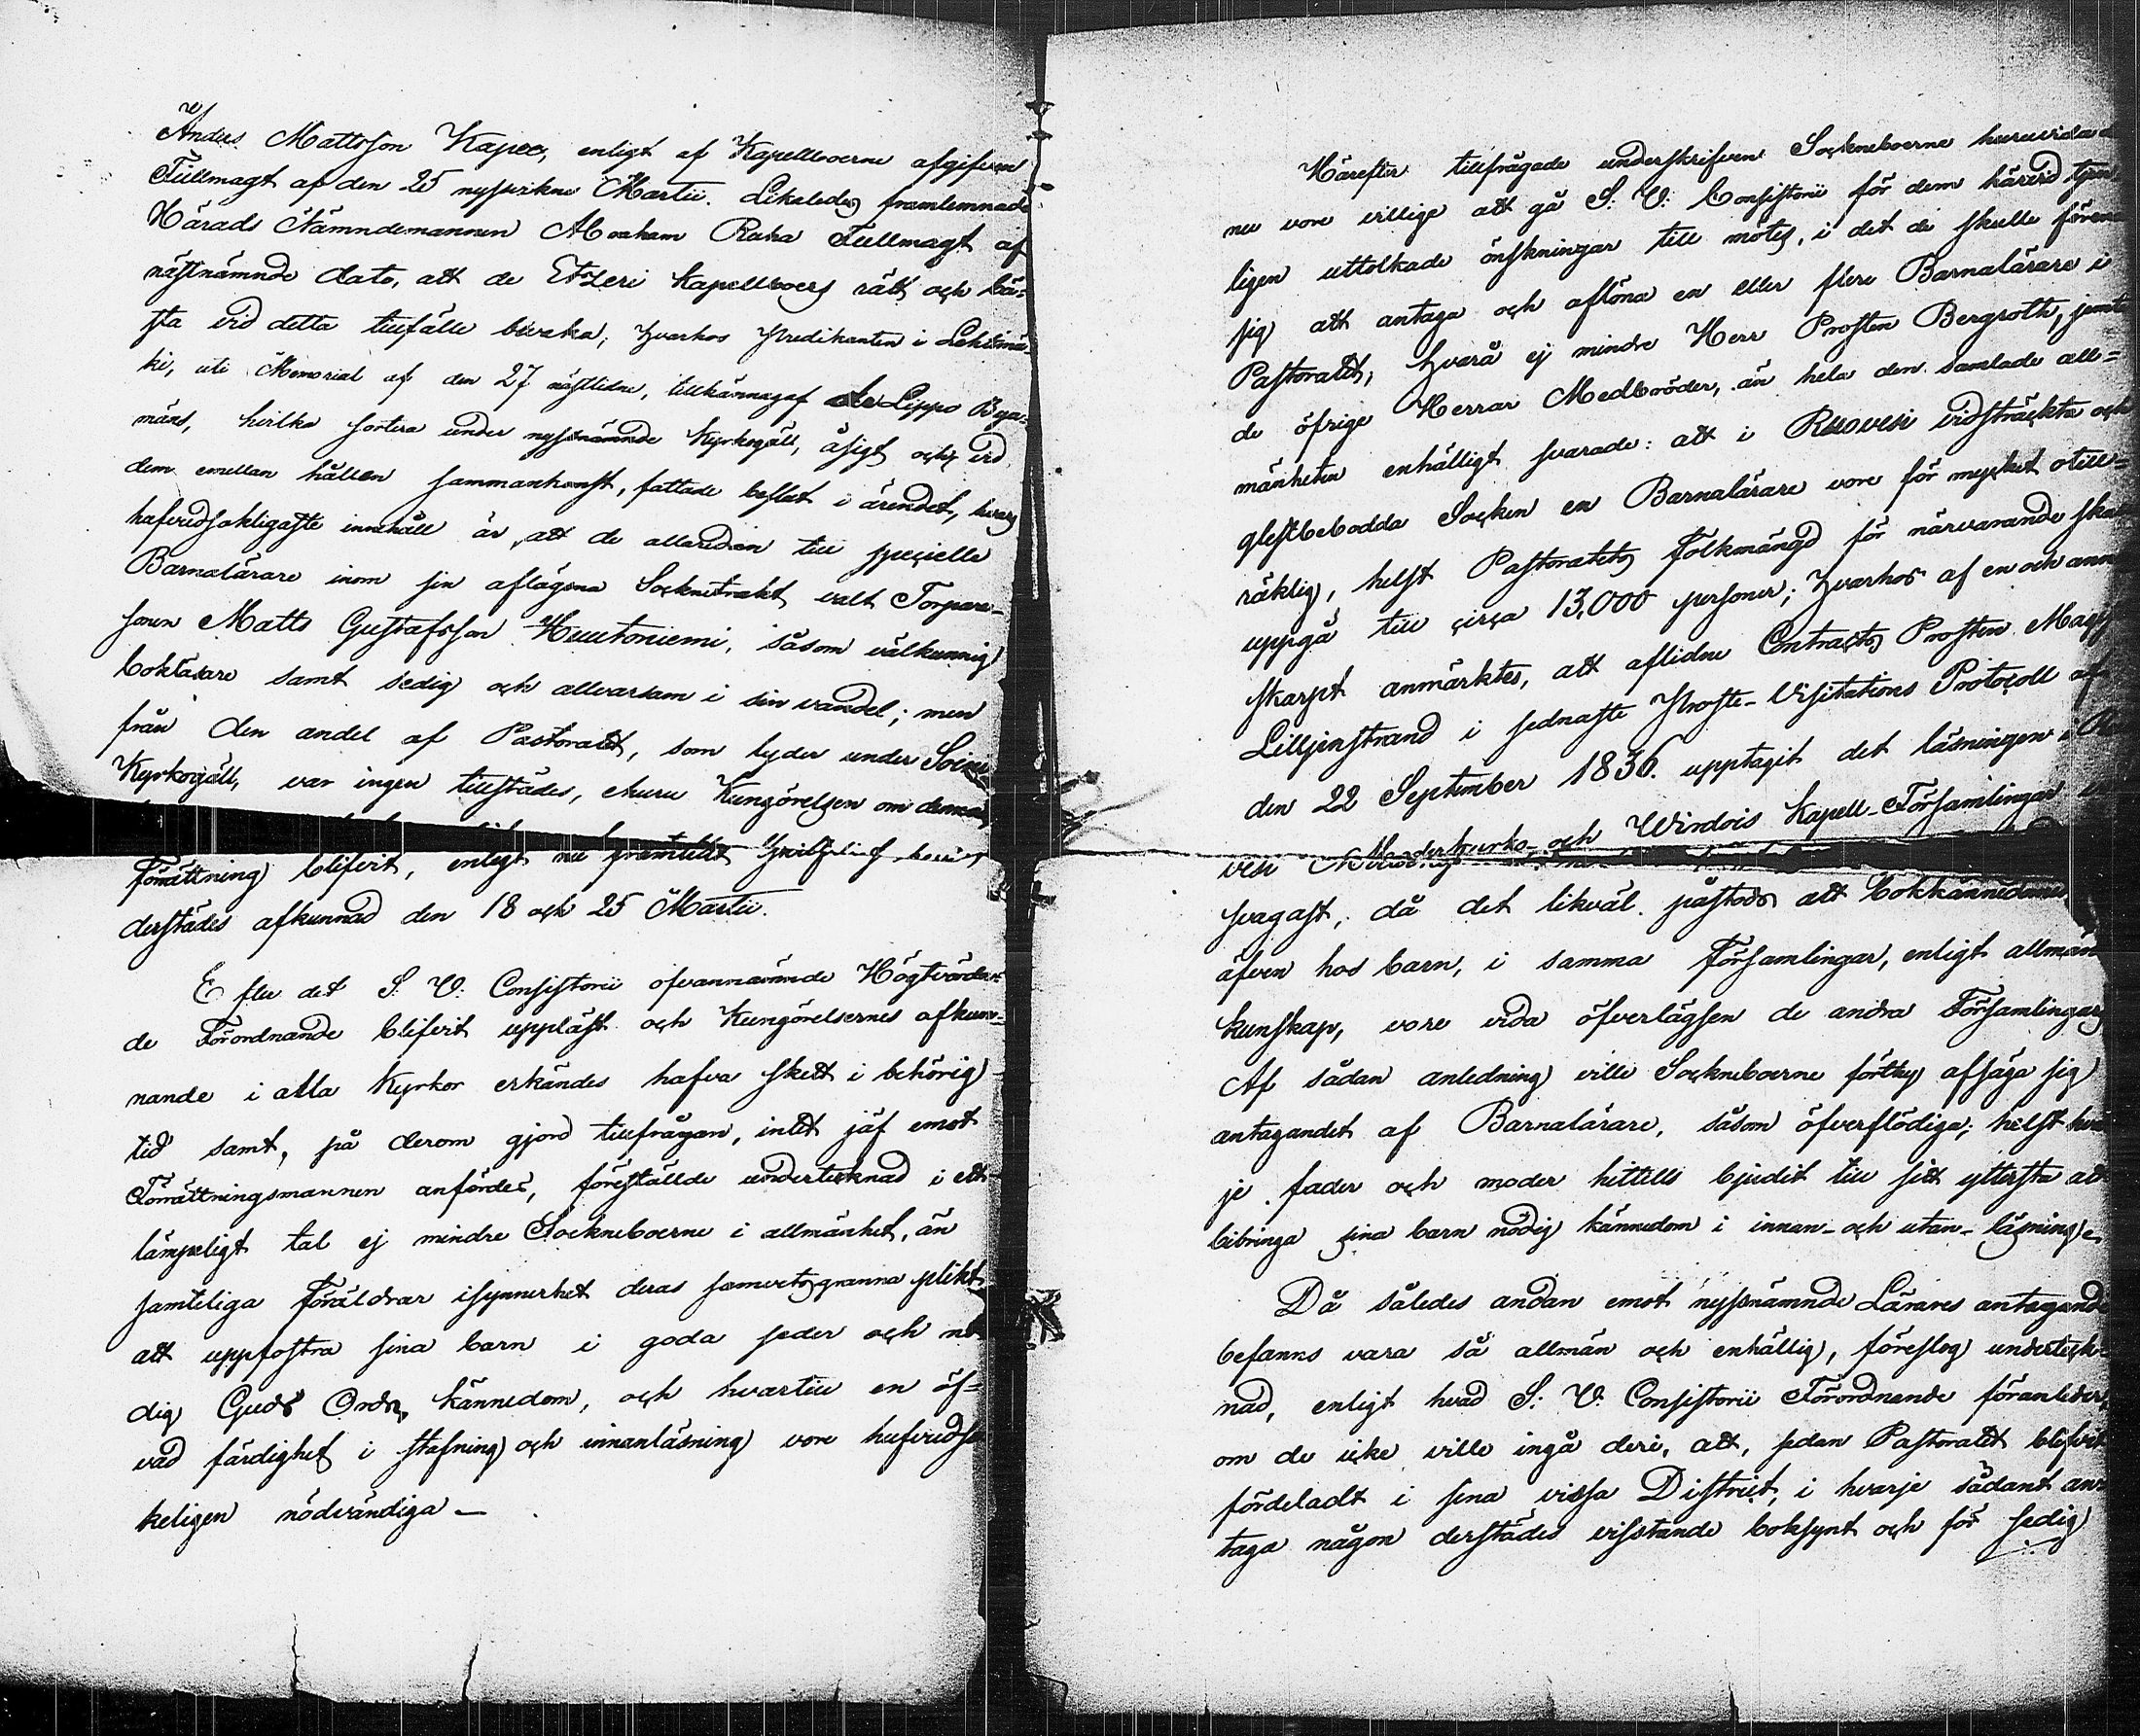 Anders Mattsson Kapee, enligt af Kapellboerne afgifven
Fullmagt af den 25 nyssvikne Martii. Likaledes framlemnade
Härads Nämndemannen Abraham Raha Fullmagt af
nästnämnde dato, att de Etzeri Kapellboers rätt och bä-
sta vid detta tillfälle bevaka; hvarhos Predikanten i Lehtimä-
ki, uti Memorial af den 27 nästlidne, tillkännagaf Lippo Bya-
mäns, hvilka sortera under nyssnämnde Kyrkogäll, åsigt och vid
dem emellan hållen sammankonst, fattade beslut i ärendet, hvars
hufvudsakligaste innehåll är, att de allaredan till specielle
Barnalärare inom sin aflägsna Socknetrakt valt Torpare-
sonen Matts Gustafsson Huutoniemi, såsom välkunnig
bokläsare samt sedig och allvarsam i sin vandel; men
från den andel af Pastoratet, som lyder under Soini
Kyrkogäll, var ingen tillstädes, ehuru Kungörelsen om denna
Förrättning blifvit, enligt nu framteldt bevis,
derstädes afkunnad den 18 och 25 Martii.
Efter det S: V: Consistorii ofvannämnde Högtvördan-
de Förordnande blifvit uppläst och Kungörelsernes afkun-
nande i alla Kyrkor erkändes hafva skett i behörig
tid samt, på derom gjord tillfrågan, intet jäf emot
Förrättningsmannen anfördes, föreställde undertecknad i ett
lämpeligt tal ej mindre Sockneboerne i allmänhet, än
samteliga Föräldrar isynnerhet deras samvetsgranna plikt
att uppfostra sina barn i goda seder och nö-
dig Guds Ords kännedom, och hvartill en öf-
vad färdighet i stafning och innanläsning vore hufvudsa-
keligen nödvändiga –
Härefter tillfrågade underskrifven Sockneboerne huruvida de
nu vore villige att gå S: V: Consistorii för dem härvid tyde-
ligen uttolkade önskningar till mötes, i det de skulle förena
sig att antaga och aflöna en eller flere Barnalärare i
Pastoratet, hvarå ej mindre Herr Prosten Bergroth, jemte
de öfrige Herrar Medbröder, än hela den samlade all-
mänheten enhälligt svarade: att i Ruovesi vidsträckta och
glestbebodda Socken en Barnalärare vore för mycket otill-
räklig, helst Pastoratets Folkmängd för närvarande skall
uppgå till circa 13,000 personer; hvarhos af en och annan
skarpt anmärktes, att aflidne Contracts Prosten Mag:
Lilljenstrand i sednaste Proste-Visitations Protocoll af
den 22 September 1836. upptagit det läsningen i Ruo-
vesi Moderkyrko- och Wirdois Kapell-Församlingar
svagast; då det likväl påstods att bokkännedomen
äfven hos barn, i samma Församlingar, enligt allmän
kunskap, vore vida öfverlägsen de andra Församlingars
Af sådan anledning ville Sockneboerne förthy afsäga sig
antagandet af Barnalärare, såsom öfverflödiga; helst hvar-
je fader och moder hittills bjudit till sitt yttersta att
bibringa sina barn nödig kännedom i innan- och utan-läsning.
Då således andan emot nyssnämnde Lärares antagande
befanns vara så allmän och enhällig, föreslog underteck-
nad, enligt hvad S: V: Consistorii Förordnande föranleder,
om de icke ville ingå deri, att, sedan Pastoratet blifvit
fördeladt i sina vissa District, i hvarje sådant an-
taga någon derstädes vistande boksynt och för sedig